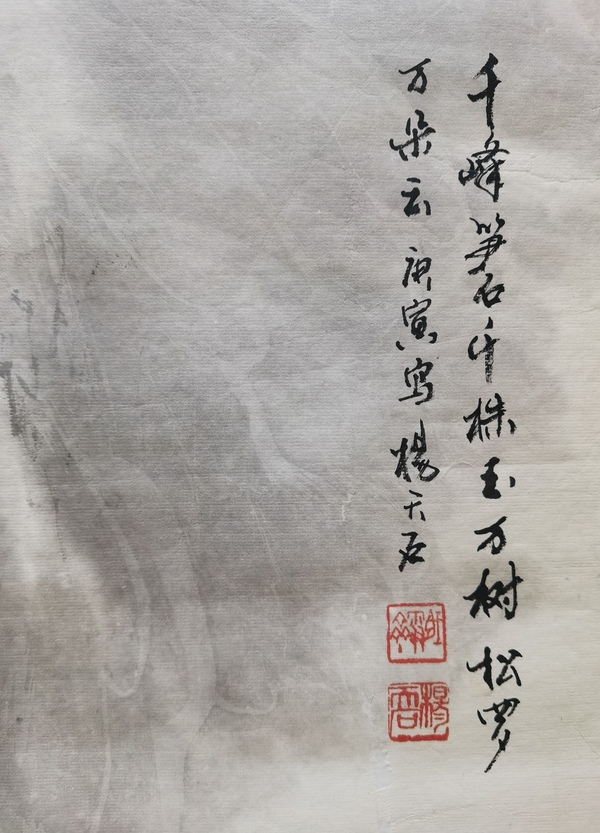 千峰笋石千株玉万树松罗
万朵云 庚寅写 杨天石